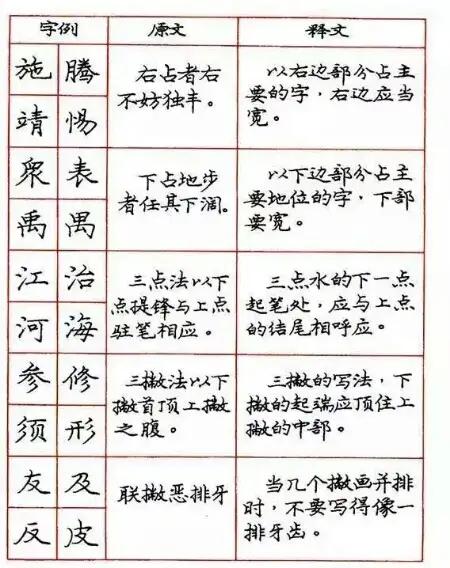 字例 原文 释文
施 腾
靖 惕
右占者右
不妨独丰。
以右边部分占主
要的字，右边应当
宽。
眾 表
禹 禺
下占地步
者任其下阔。
以下边部分占主
要地位的字，下部
要宽。
江 治
河 海
三点法以下
点提锋与上点
驻笔相应。
三点水的下一点
起笔处，应与上点
的结尾相呼应。
参 修
须 形
三撇法以下
撇首顶上撇
之腹。
三撇的写法，下
撇的起端应顶住上
撇的中部。
友 及
反 皮
联撇恶排牙
当几个撇画并排
时，不要写得像一
排牙齿。